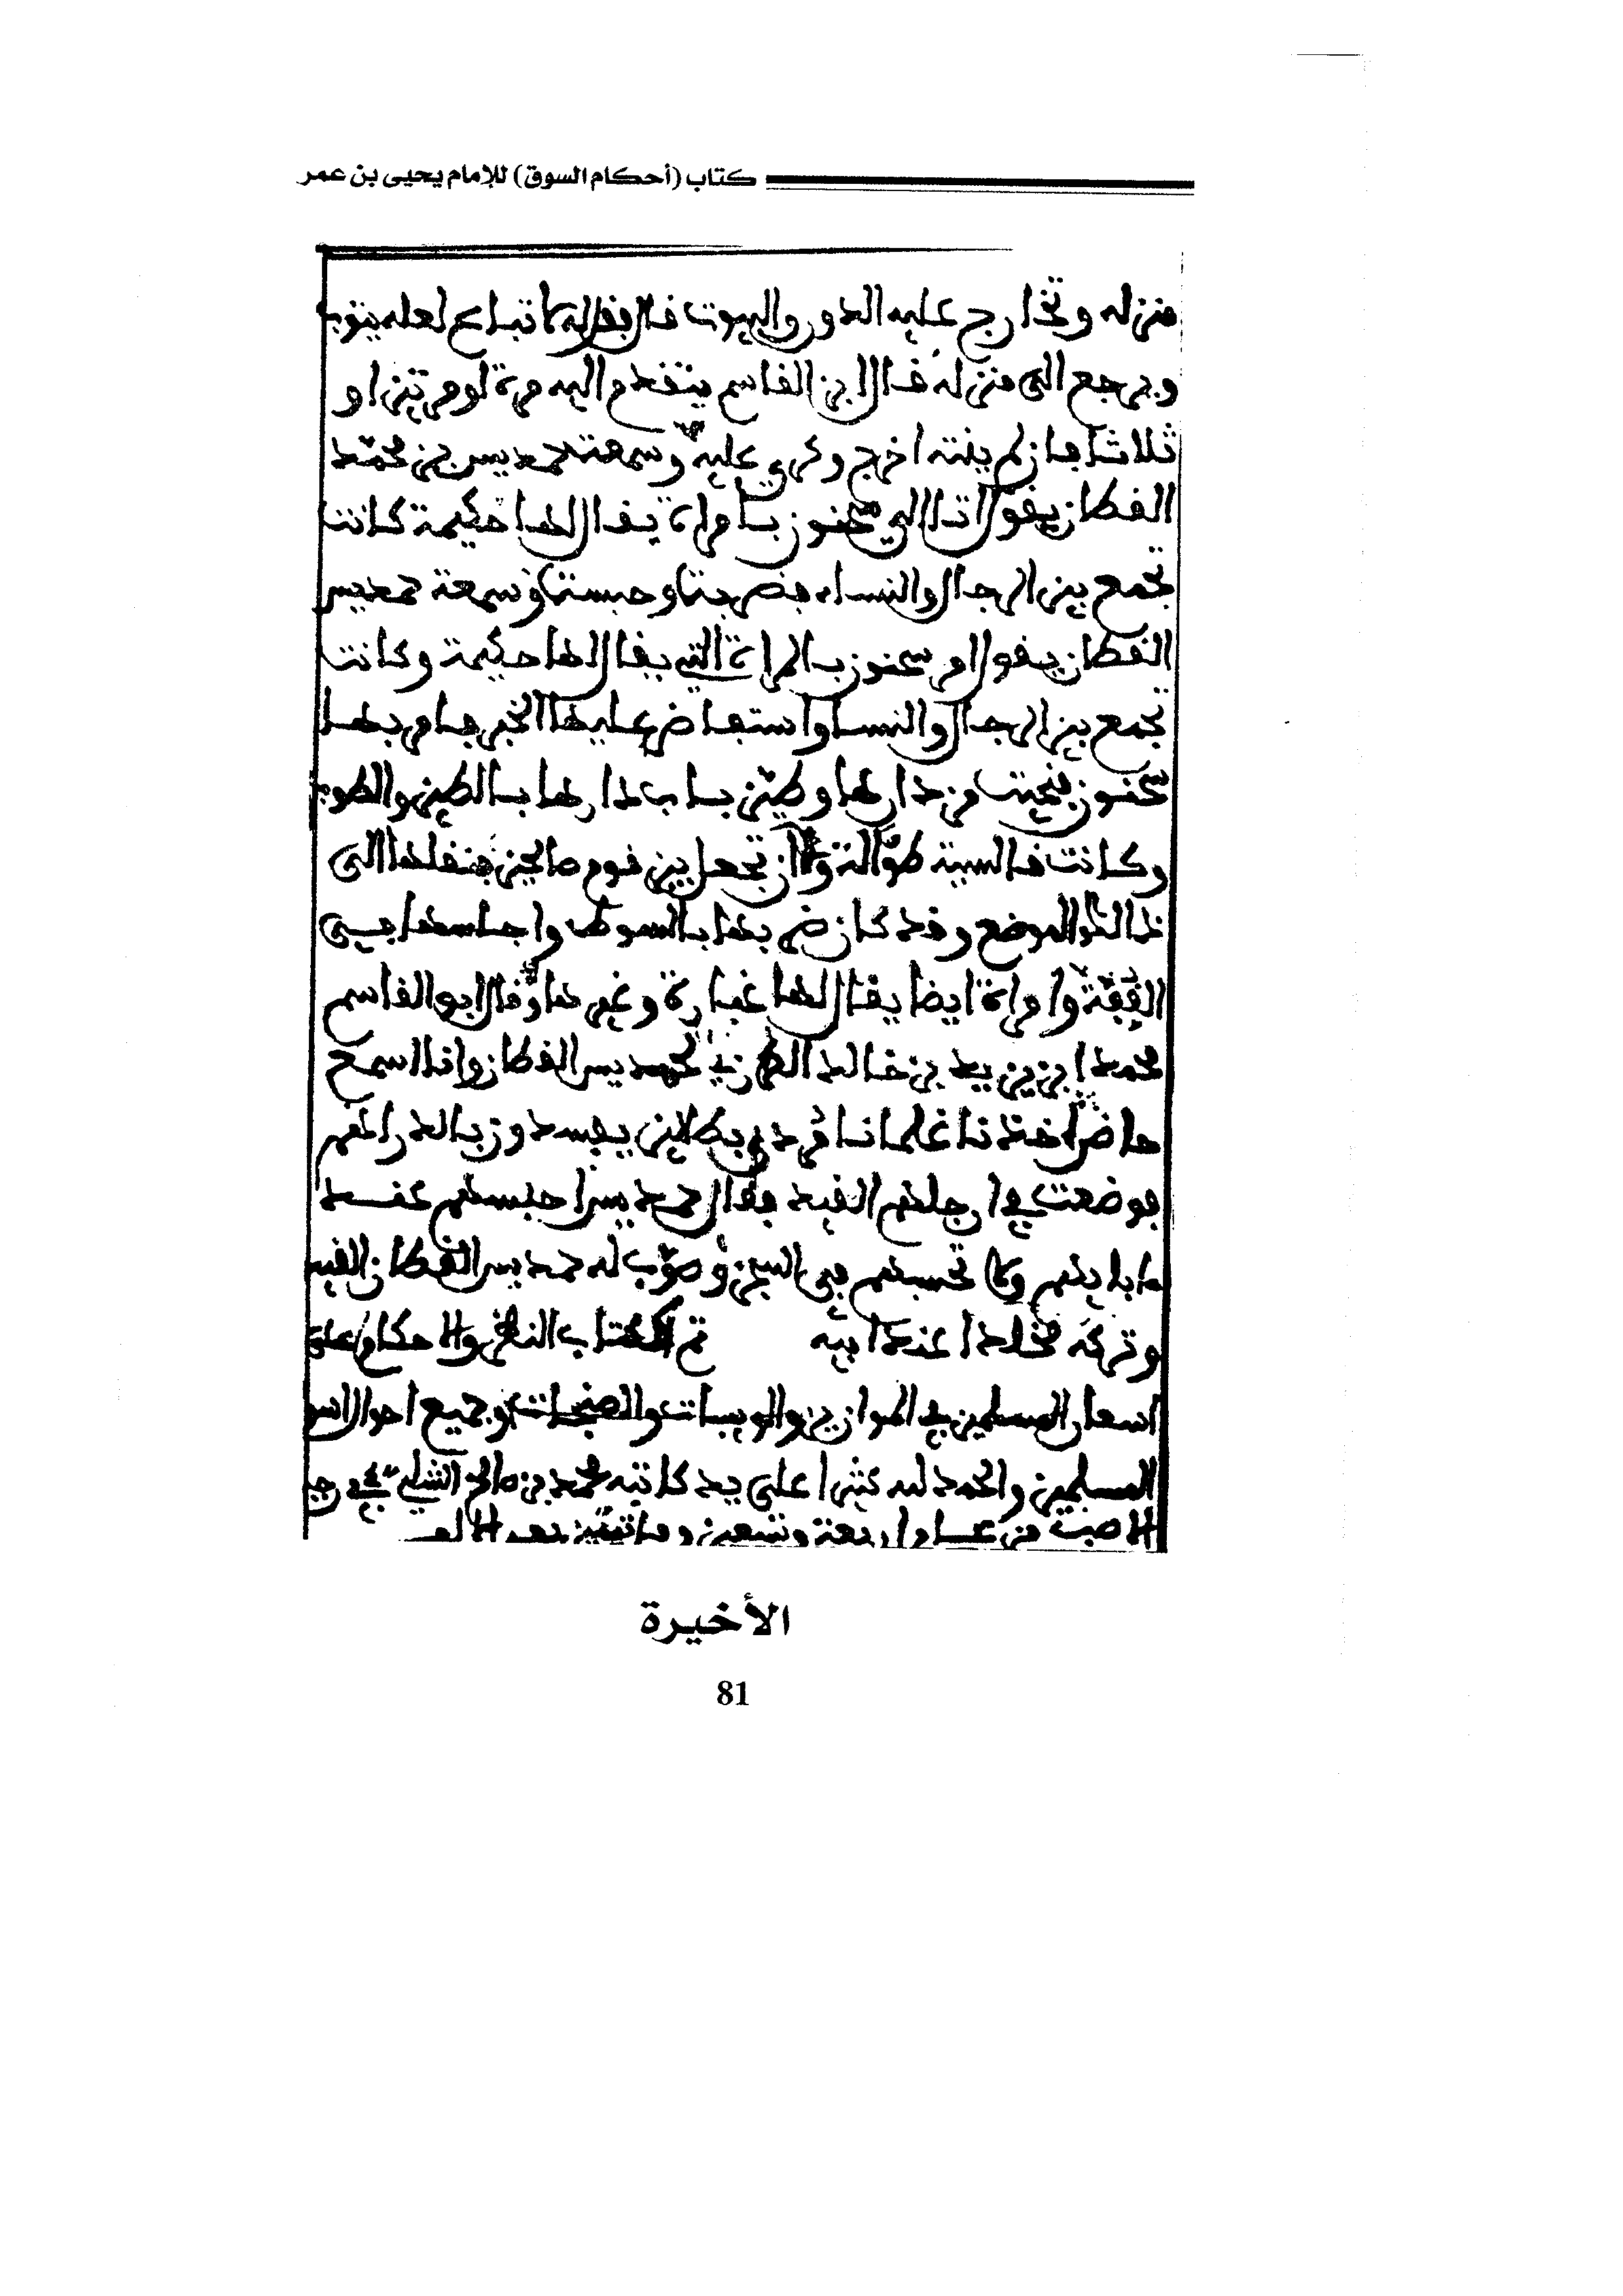 كتاب (أحكام السوق) للإمام يحيى بن عمر
منزله وتخارج عليه الدور والبيوت قال فقال له لا تباع لعله يتوب
ويرجع الى منزله قال ابن القاسم يتقدم اليه مرة او مرتين او
ثلاثا فان لم ينته اخرج وكري عليه وسمعت حمديس بن محمد
القطان يقول اتا الي سحنون بامراة يقال لها حكيمة كانت
تجمع بين الرجال والنساء فضربها وحبسها وسمعت حمديس
القطان يقول امر سحنون بالمراة التي يقال لها حكيمة وكانت
تجمع بين الرجال والنسا واستفاض عليها الخبر فامر بها
سحنون فنحيت من دارها وطين باب دارها بالطين والطوب
وكانت طوالة وامر ان تجعل بين قوم صالحين فنقلها الى
ذالك الموضع وقد كان ضربها بالسوط واجلسها في
القفة وامراة ايضا يقال لها غبارة وغيرها وقال ابو القاسم
محمد ابن زيد بن خالد الطرزي لحمديس القطان وانا اسمع
حاضر اخذنا غلمانا مرد بطالين يفسدون بالدراهم
فوضعت في ارجلهم القيد فقال حمديس احبسهم عند
ابايهم ولا تحبسهم في السجن وصوب له حمديس القطان القيد
وتركه عند ابيه تم الكتاب النظر والاحكام على
اسعار المسلمين في الموازين والويبات والصنجات وجميع احوال اسو
المسلمين والحمد لله كثيرا على يد كاتبه محمد بن صالح
من عام اربعة وتسعين وماتين بعد الالف
الأخيرة
81